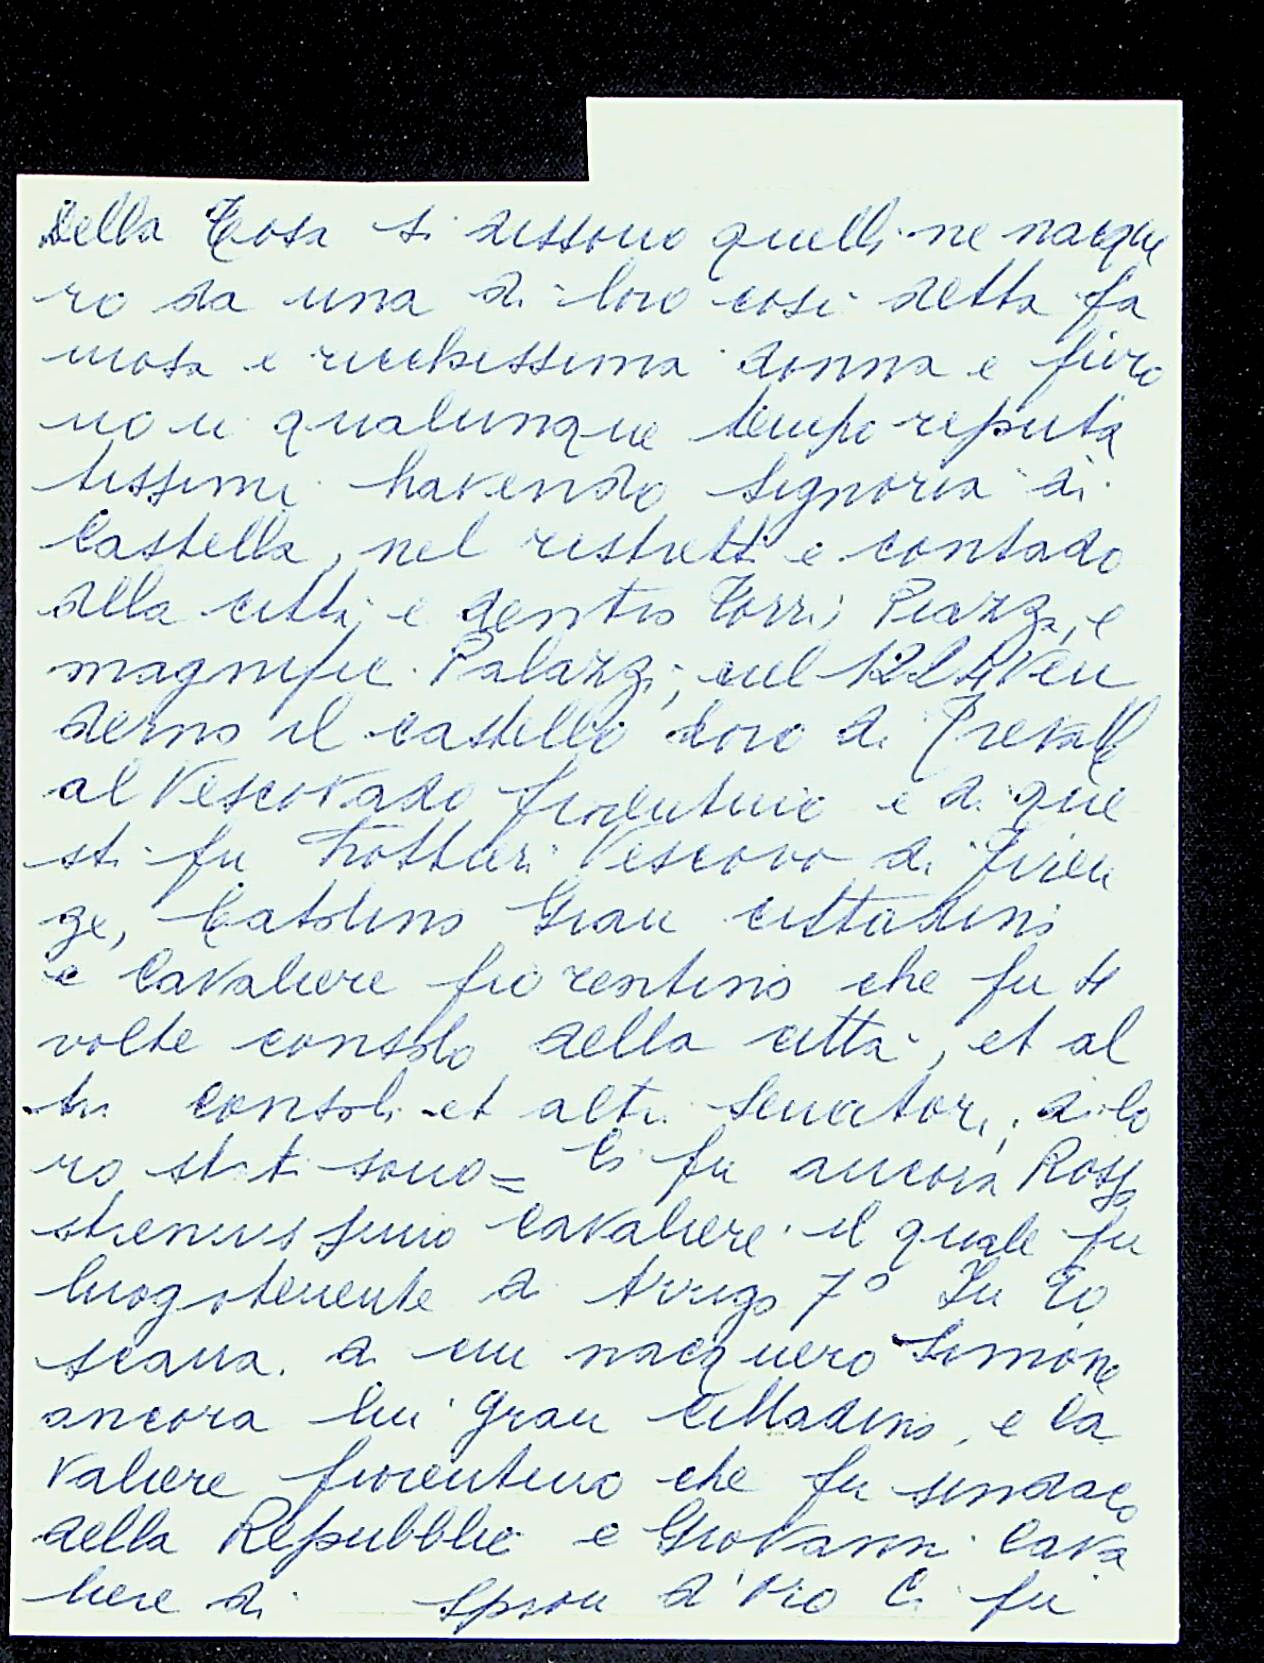 Della Tosa si dissono quelli ne nacque
ro da una di loro così detta fa
mosa e ricchissima donna e furo
no in qualunque tempo reputa
tissimi havendo Signoria di
Castella, nel ristretto e contado
della città, e dentro Torri, Piazza, e
magnific. Palazzi, nel 1224 Ven
derno il castello loro di
al Vescovado fiorentino e di que
sti fu Trottieri Vescovo di Firen
ze, Catolino Gran cittadino
e Cavaliere fiorentino che fu 4
volte consolo della città, et al
tri consoli et altri Senatori, di lo
ro stati sono = Ci fu ancora Rosso
strenuissimo Cavaliere il quale fu
luogotenente di Arrigo 7º In To
scana. di cui nacquero Simone
ancora lui Gran Cittadino, e Ca
valiere fiorentino che fu sindaco
della Repubblic e Giovanni Cava
liere di Spron d'oro Ci fu